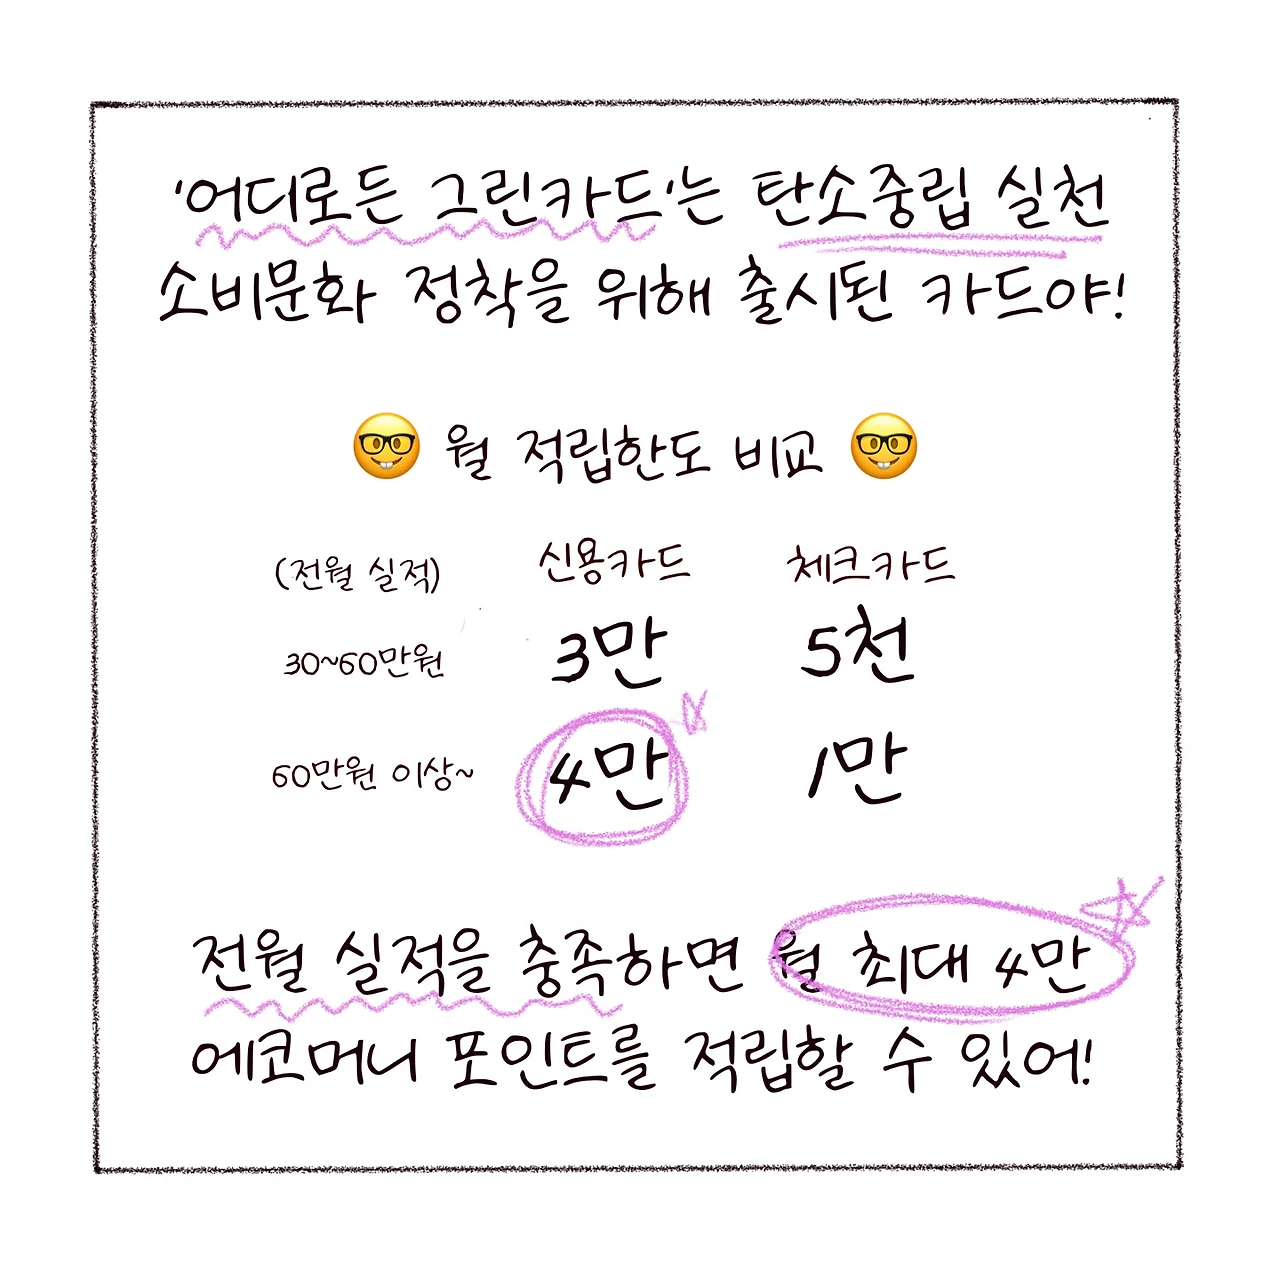 '어디로든 그린카드'는 탄소중립 실천
소비문화 정착을 위해 출시된 카드야!
🤓 월 적립한도 비교 🤓
(전월 실적) 신용카드 체크카드
30~60만원 3만 5천
60만원 이상~ 4만 1만
전월 실적을 충족하면 월 최대 4만
에코머니 포인트를 적립할 수 있어!